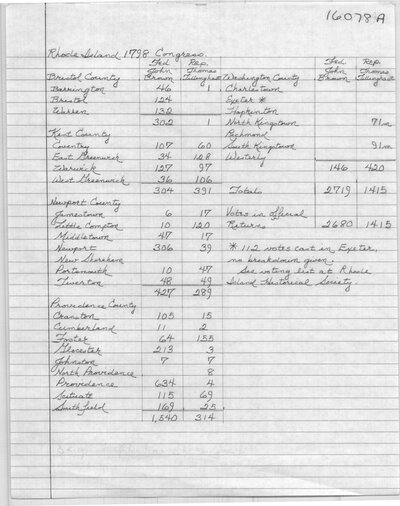 16078A
Rhode Island 1798 Congress.
Fed. Rep. Fed. Rep.
John Thomas John Thomas
Bristol County Brown Tillinghast Washington County Brown Tillinghast
Barrington 46 1 Charlestown
Bristol 124 Exeter *
Warren 132 Hopkinton
302 1 North Kingstown 71m
Kent County Richmond
Coventry 107 60 South Kingstown 91m
East Greenwich 34 128 Westerly
Warwick 127 97 146 420
West Greenwich 36 106
304 391 Totals 2719 1415
Newport County
Jamestown 6 17 Votes in official
Little Compton 10 120 Returns 2680 1415
Middletown 47 17
Newport 306 39 * 112 votes cast in Exeter,
New Shoreham no breakdown given.
Portsmouth 10 47 See voting list at Rhode
Tiverton 48 49 Island Historical Society.
427 289
Providence County
Cranston 105 15
Cumberland 11 2
Foster 64 155
Glocester 213 3
Johnston 7 7
North Providence 8
Providence 634 4
Scituate 115 69
Smithfield 169 25
1,540 314